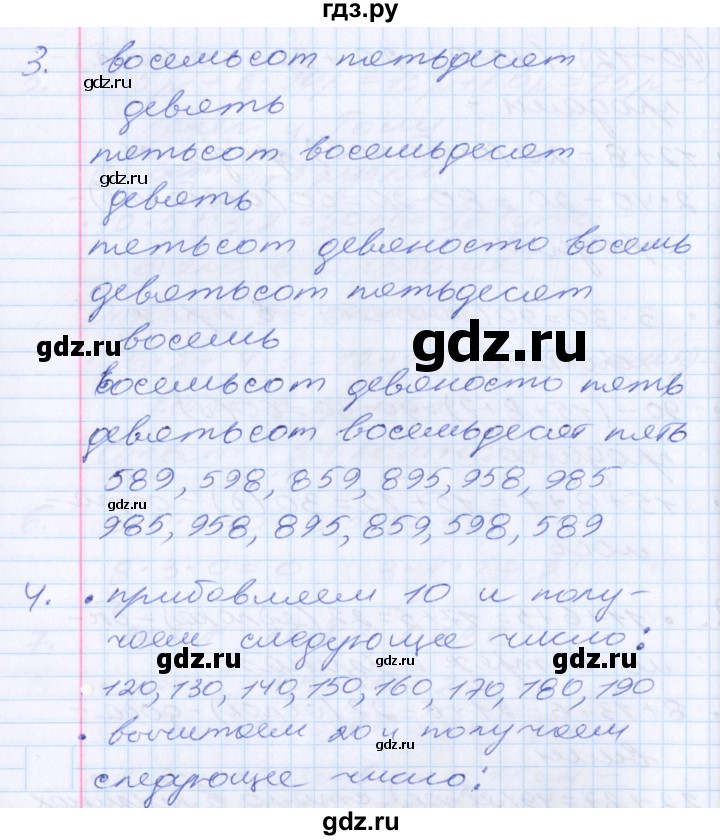 гдз.ру
3. восемьсот пятьдесят
девять
пятьсот восемьдесят
девять
пятьсот девяносто восемь
девятьсот пятьдесят
восемь
восемьсот девяносто пять
девятьсот восемьдесят пять
589, 598, 859, 895, 958, 985
985, 958, 895, 859, 598, 589
4. • прибавляем 10 и полу-
чаем следующее число:
120, 130, 140, 150, 160, 170, 180, 190
• вычитаем 20 и получаем
следующее число:
gdz.ru
gdz.ru
gdz.ru
gdz.ru
gdz.ru
gdz.ru
gdz.ru
gdz.ru
gdz.ru
gdz.ru
gdz.ru